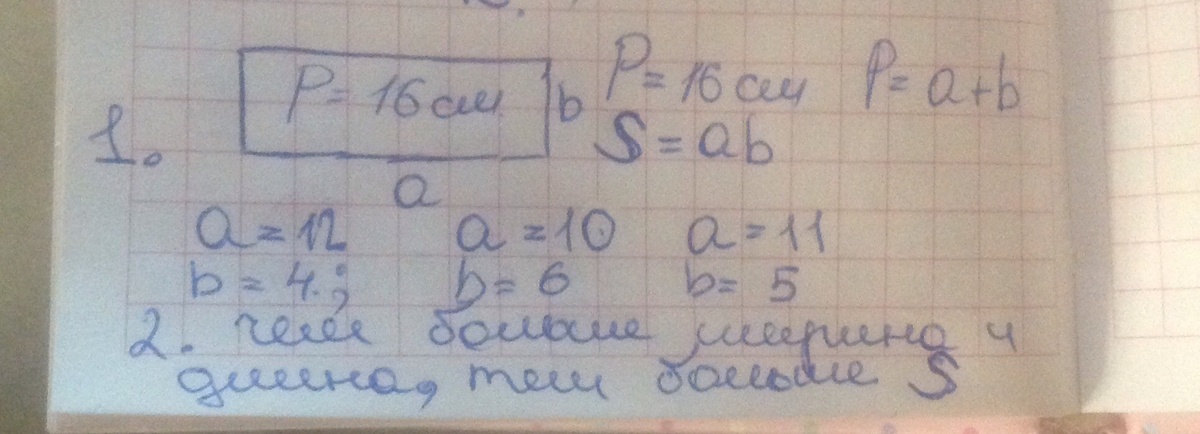 P = 16 см b P = 16 см P = a+b
1. S = ab
a
a = 12 a = 10 a = 11
b = 4.; b = 6 b = 5
2. чем больше ширина и
длина, тем больше S